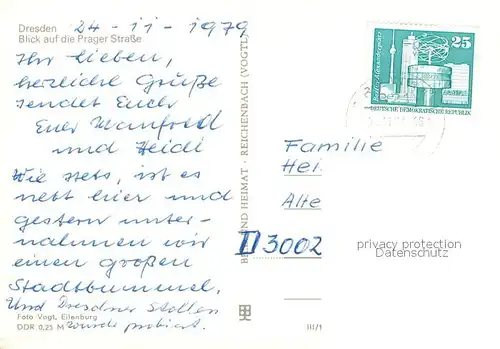 Dresden
24-11-1979
Blick auf die Prager Straße
Ihr Lieben,
herzliche Grüße
sendet Euch
Euer Manfred
und Heidi
Wie stets, ist es
nett hier und
gestern unter-
nahmen wir
einen großen
Stadtbummel.
Und Dresdner Stollen
wurde probiert.
Foto Vogt, Eilenburg
DDR 0,25 M
BILD UND HEIMAT · REICHENBACH (VOGTL)
25
DEUTSCHE DEMOKRATISCHE REPUBLIK
Familie
Hei
Alte
3002
privacy protection
Datenschutz
III/1